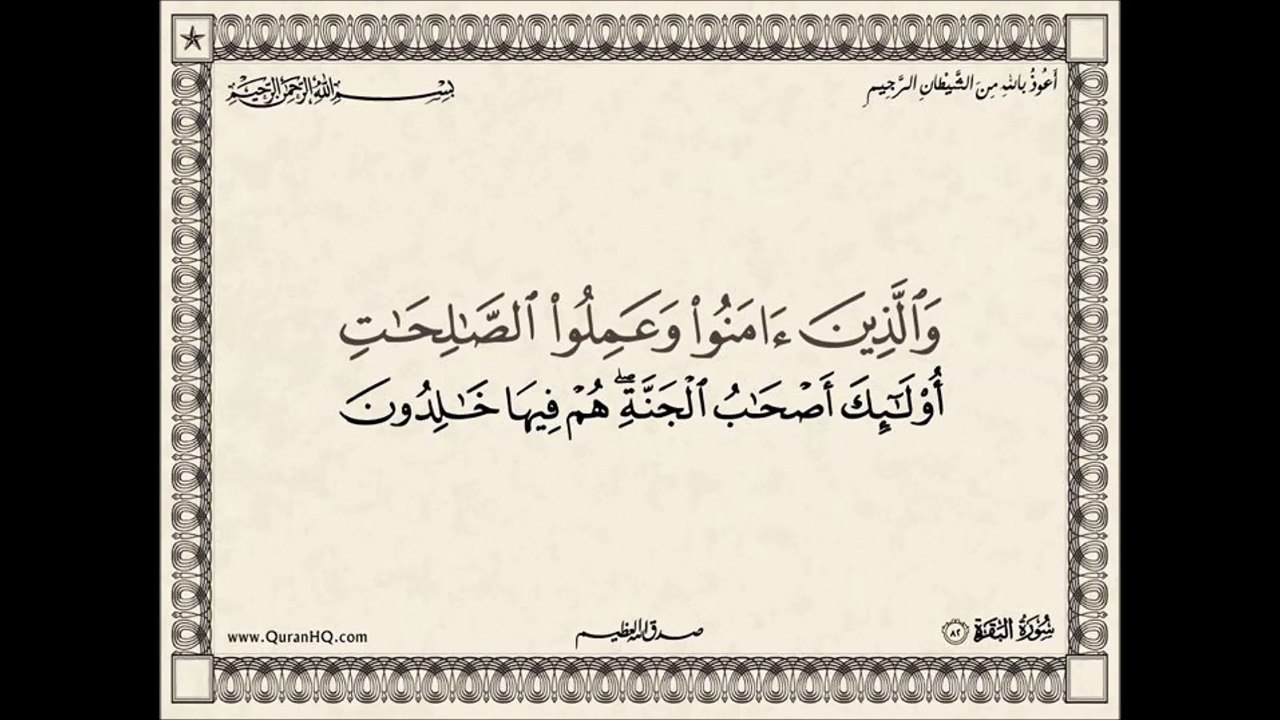 أَعُوذُ بِاللهِ مِنَ الشَّيْطَانِ الرَّجِيمِ
بِسْمِ اللهِ الرَّحْمَٰنِ الرَّحِيمِ
وَٱلَّذِينَ ءَامَنُوا۟ وَعَمِلُوا۟ ٱلصَّـٰلِحَـٰتِ
أُو۟لَـٰٓئِكَ أَصْحَـٰبُ ٱلْجَنَّةِ ۖ هُمْ فِيهَا خَـٰلِدُونَ
سُورَةُ الْبَقَرَة ٨٢
صدق الله العظيم
www.QuranHQ.com